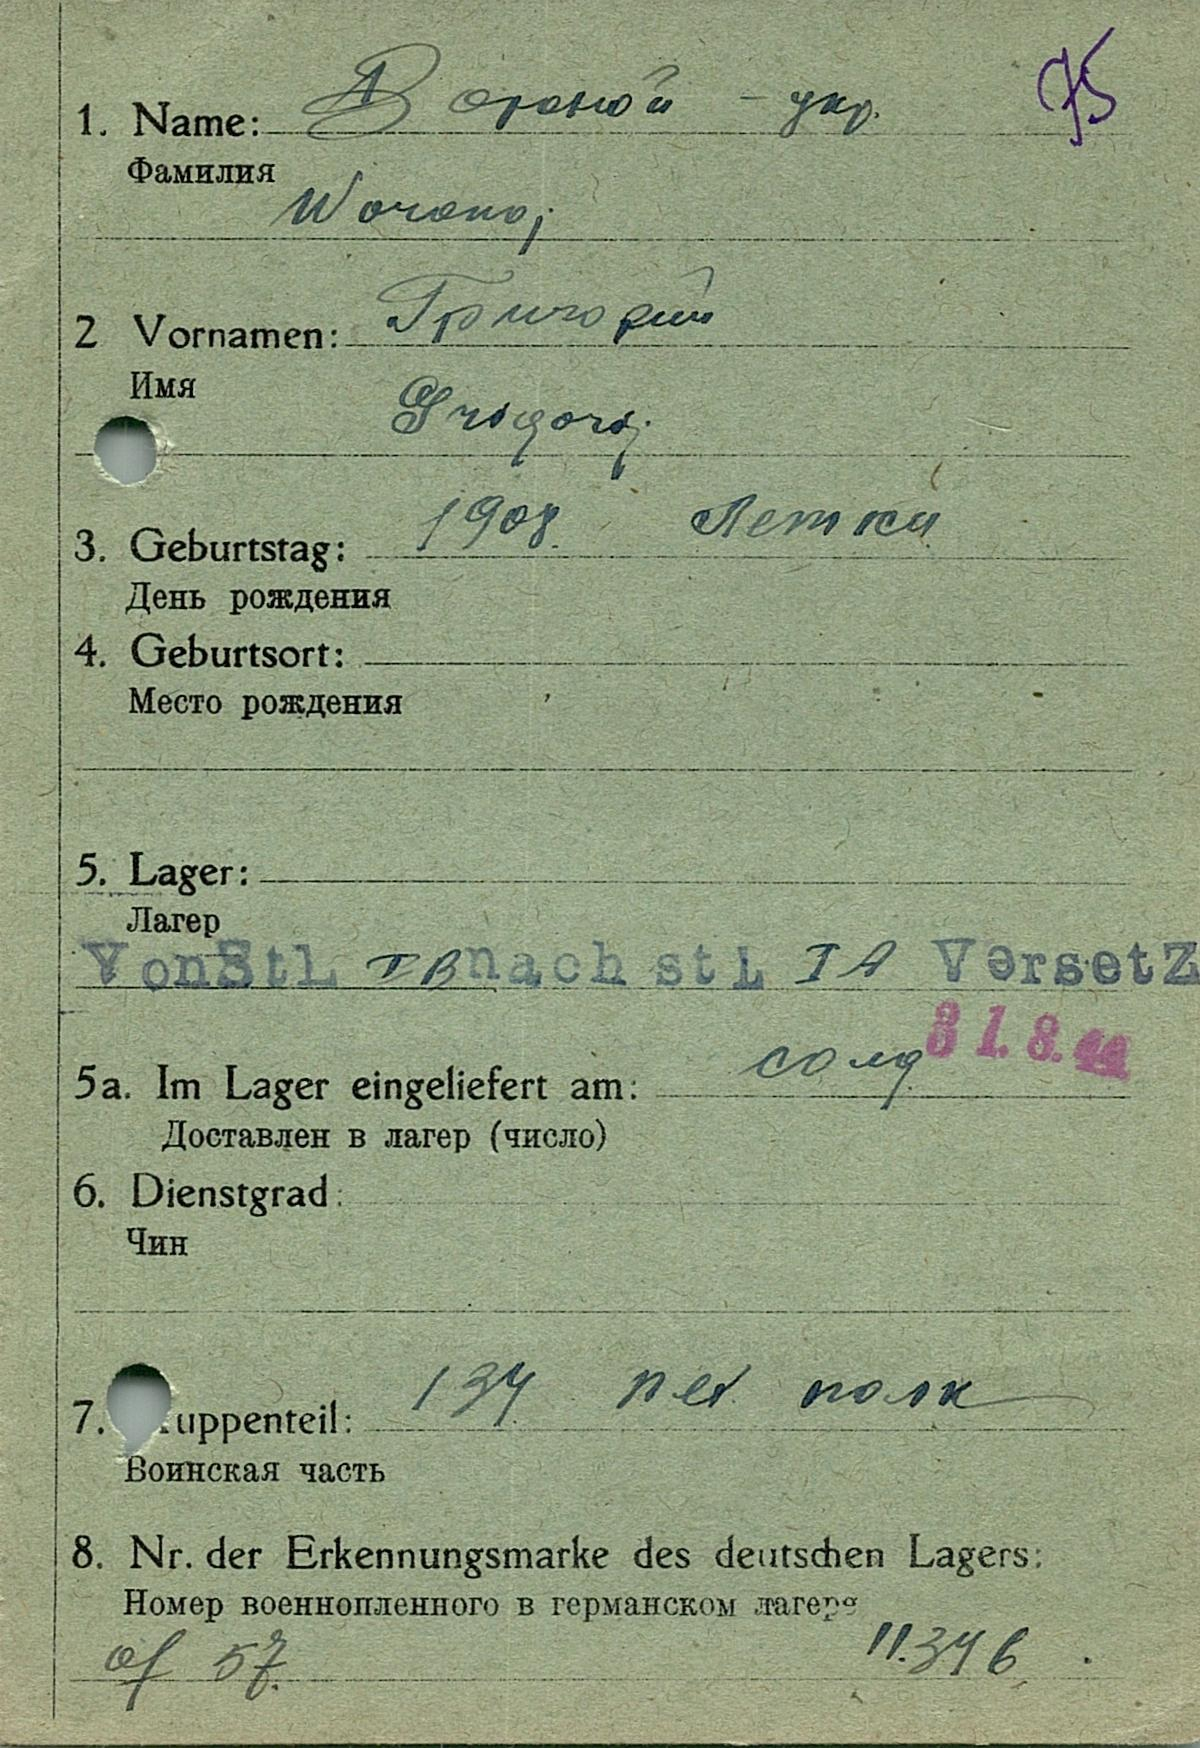 75
1. Name: Вороной - укр.
Фамилия
Woronoj
2 Vornamen: Григорий
Имя
Grigorij
3. Geburtstag: 1908 Летки
День рождения
4. Geburtsort:
Место рождения
5. Lager:
Лагер
VonStL IB nach stL IA VersetZ
31.8.44
5a. Im Lager eingeliefert am: солд
Доставлен в лагер (число)
6. Dienstgrad:
Чин
7. uppenteil: 134 пех полк
Воинская часть
8. Nr. der Erkennungsmarke des deutschen Lagers:
Номер военнопленного в германском лагере
of 57. 11.346